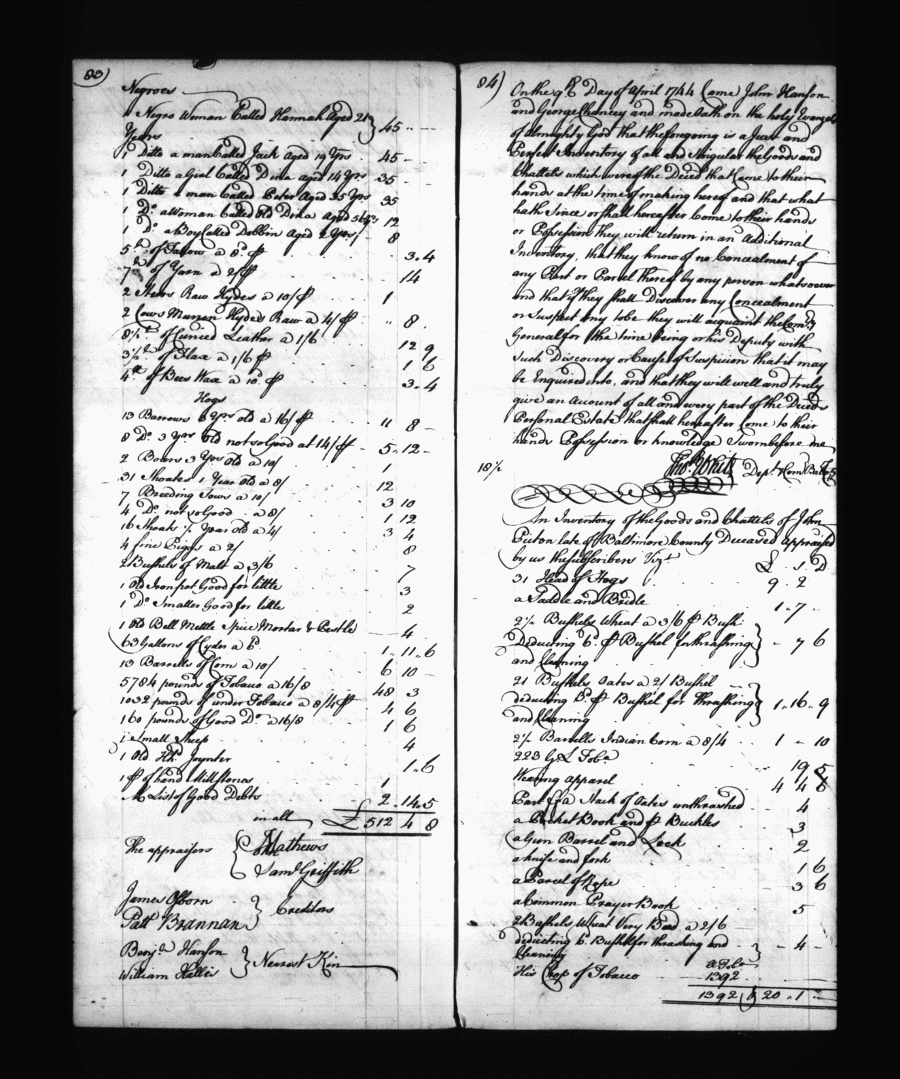 83)
Negroes
1 Negro Woman Called Hannah Aged 21 Years } 45 .. —
1 Ditto a man Called Jack Aged 19 Yrs . 45 —
1 Ditto a Girl Called Dina Aged 14 Yrs 35 —
1 Ditto a man Called Peter Aged 35 Yrs 35
1 Do. a Woman Called old Dina Aged 12
1 Do. a Boy Called Dobbin Aged Yrs/ - 8
5 lb. of Tallow a 8d. ⅌ 3 .. 4
7 lb of Yarn a 2/⅌ 14
2 Steers Raw Hydes a 10/⅌ 1
2 Cows Murren Hydes Raw a 4/⅌ " 8 .
8½ lb. of Leather a 1/6 12 9
3½ lb. of Flax a 1/6 ⅌ 1 6
4 lb of Bees Wax a 10d. ⅌ 3 .. 4
Hogs
13 Barrows Yrs old a 16/⅌ 11 8 -
8 Do. 3 Yrs old not so Good at 14/⅌ 5 .. 12 -
2 Boars 3 Yrs old a 10/ 1
31 Shoats 1 Year old a 8/ 12
7 Breeding Sows a 10/ 3 10
4 Do. not so Good a 8/ 1 12
16 Shoats ½ Year old a 4/ 3 4
4 fine Piggs a 2/ 8
2 Bushels of Malt a 3/6 7
1 Old Iron pot Good for little 3
1 Do. Smaller Good for little 2
1 Old Bell Mettle Spice Mortar & Pestle 4
63 Gallons of Cyder a 6d. 1 .. 11 .. 6
13 Barrells of Corn a 10/ 6 10 -
5784 pounds of Tobacco a 16/8 48 3
1032 pounds of under Tobacco a 8/4 ⅌ 4 6
160 pounds of Good Do. a 16/8 1 6
1 Small Sheep 4
1 Old Joynter 1 .. 6
1 ⅌ of hand Millstones 1
A List of Good Debts 2 .. 14 .. 5
in all £ 512 4 8
The appraisers { Mathews
Saml Griffith
James Osborn
Patt Brannan } Creditors
Benja. Hanson
William Hollis } Nearest Kin
84)
On the 9th Day of April 1744 Came John Hanson
and George Chancey and made Oath on the holy Evangels
of Almighty God that the foregoing is a Just and
Perfect Inventory of all and Singular the Goods and
Chattels which were of the Deced that Came to their
hands at the time of making hereof and that what
hath Since or shall hereafter Come to their hands
or Possession they will return in an Additional
Inventory, that they know of no Concealment of
any Part or Parcel thereof by any person whatsoever
and that if they shall Discover any Concealment
or Suspect any to be they will acquaint the Comry
General for the time being or his Deputy with
Such Discovery or Cause of Suspicion that it may
be Enquired into, and that they will well and truly
give an Account of all and every part of the Deceds
Personal Estate that shall hereafter Come to their
hands Possession or knowledge Sworn before me
Thos. White Depy. Com. Balto. Cty
An Inventory of the Goods and Chattels of John
late of Baltimore County Deceased appraised
by us the subscribers Vizt. £ S D
31 Head of Hogs 9 .. 2
a Saddle and Bridle 1 .. 7 -
2½ Bushels Wheat a 3/6 ⅌ Bush:
Deducting 6d. ⅌ Bushel for thrashing
and Cleaning } - 7 6
21 Bushels Oates a 2/ Bushel
deducting ⅌ Bushel for Thrashing
and Cleaning } 1 .. 16 .. 9
2½ Barrells Indian Corn a 8/4 1 - 10
223 Toba 19 5
Wearing apparel 4 4 6
Part of a Stack of Oates unthrashed 4
a Pocket Book and ⅌ Buckles 3
a Gun Barrel and Lock 2
a knife and fork 1 6
a Parcel of Rope 3 6
a Common Prayer Book 5
2 Bushels Wheat Very Bad a 2/6
deducting 6d. Bushel for thrashing and
Cleaning } - 4 -
His Crop of Tobacco 1392
1392 £ 20 .. 1 -